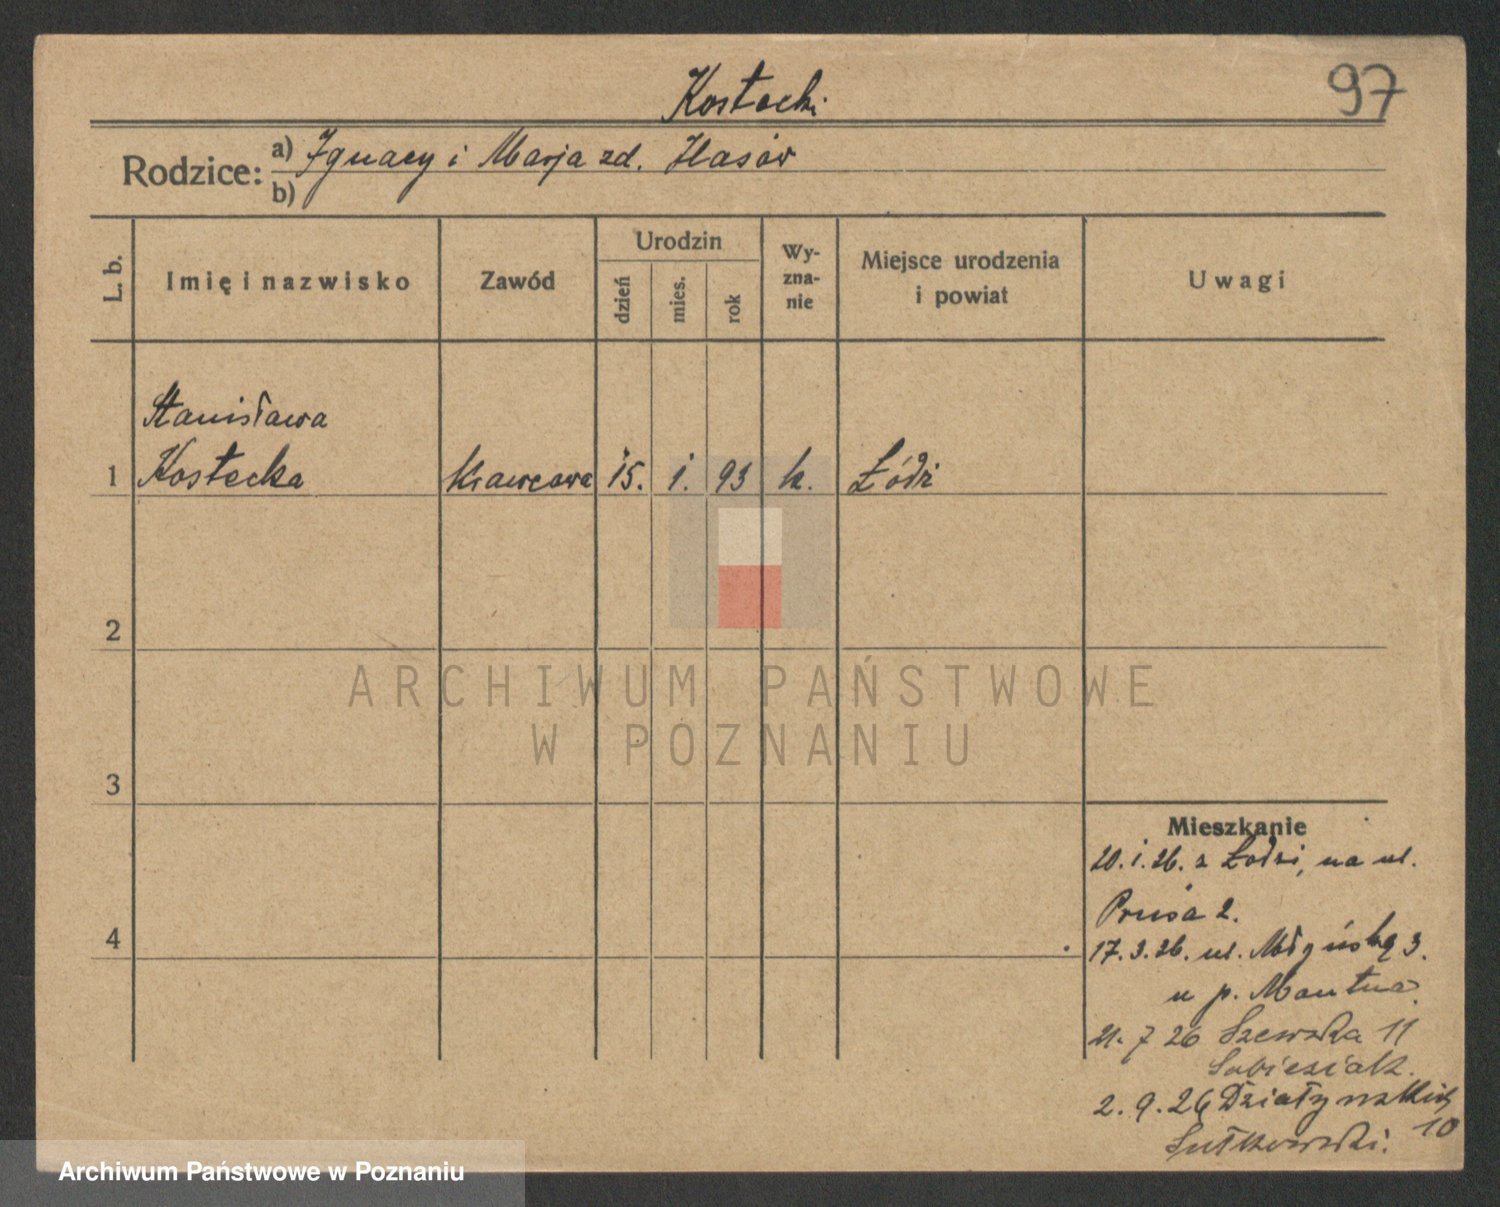 Kostecki
97
Rodzice: a) Ignacy i Marja zd. Ilasów
b)
L. b.
Imię i nazwisko
Zawód
Urodzin
dzień
mies.
rok
Wy-
zna-
nie
Miejsce urodzenia
i powiat
Uwagi
Stanisława
1 Kostecka krawcowa 15. 1. 93 k. Łódź
2
ARCHIWUM PAŃSTWOWE
W POZNANIU
3
4
Mieszkanie
20.1.26. z Łodzi, na ul.
Prusa 2.
17.3.26. ul. Młyńską 3.
u p. Mantua
21. 7 26 Szewska 11
Sobiesiak.
2. 9. 26 Działyńskich
10
Sułkowski.
Archiwum Państwowe w Poznaniu